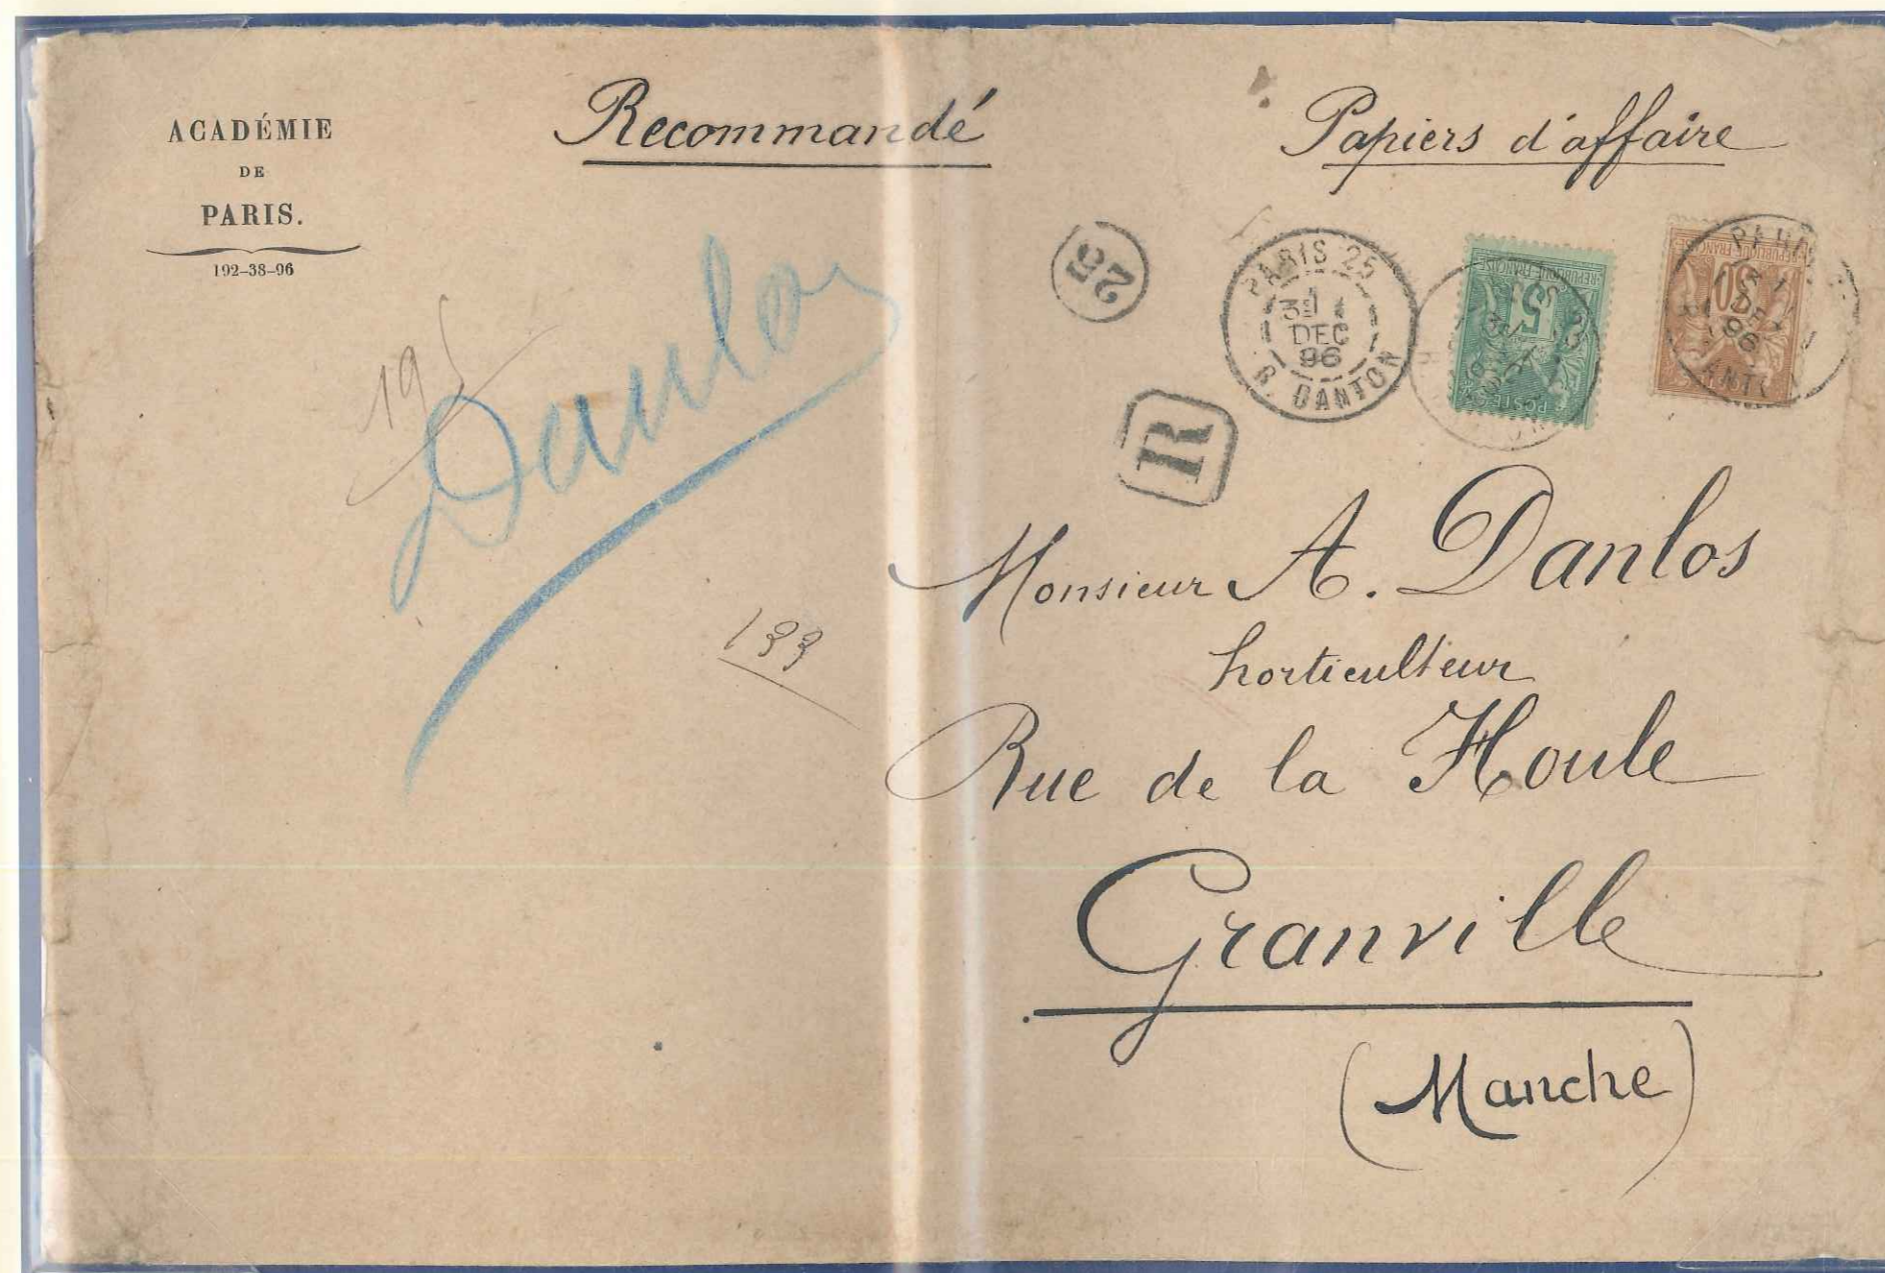 ACADÉMIE
DE
PARIS.
192-38-96
Recommandé
Papiers d'affaire
25
PARIS 25
1
DEC
96
R. DANTON
REPUBLIQUE FRANÇAISE
5
POSTES
REPUBLIQUE FRANÇAISE
30
DEC
96
R
195
Danlos
133
Monsieur A. Danlos
horticulteur
Rue de la Houle
Granville
(Manche)